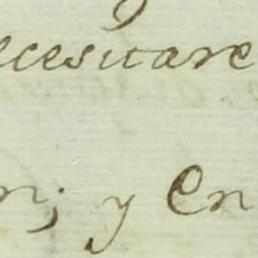 ecesitare
n; y en